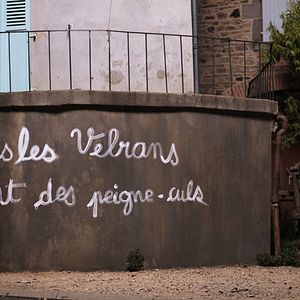 s les Vélrans
t des peigne-culs